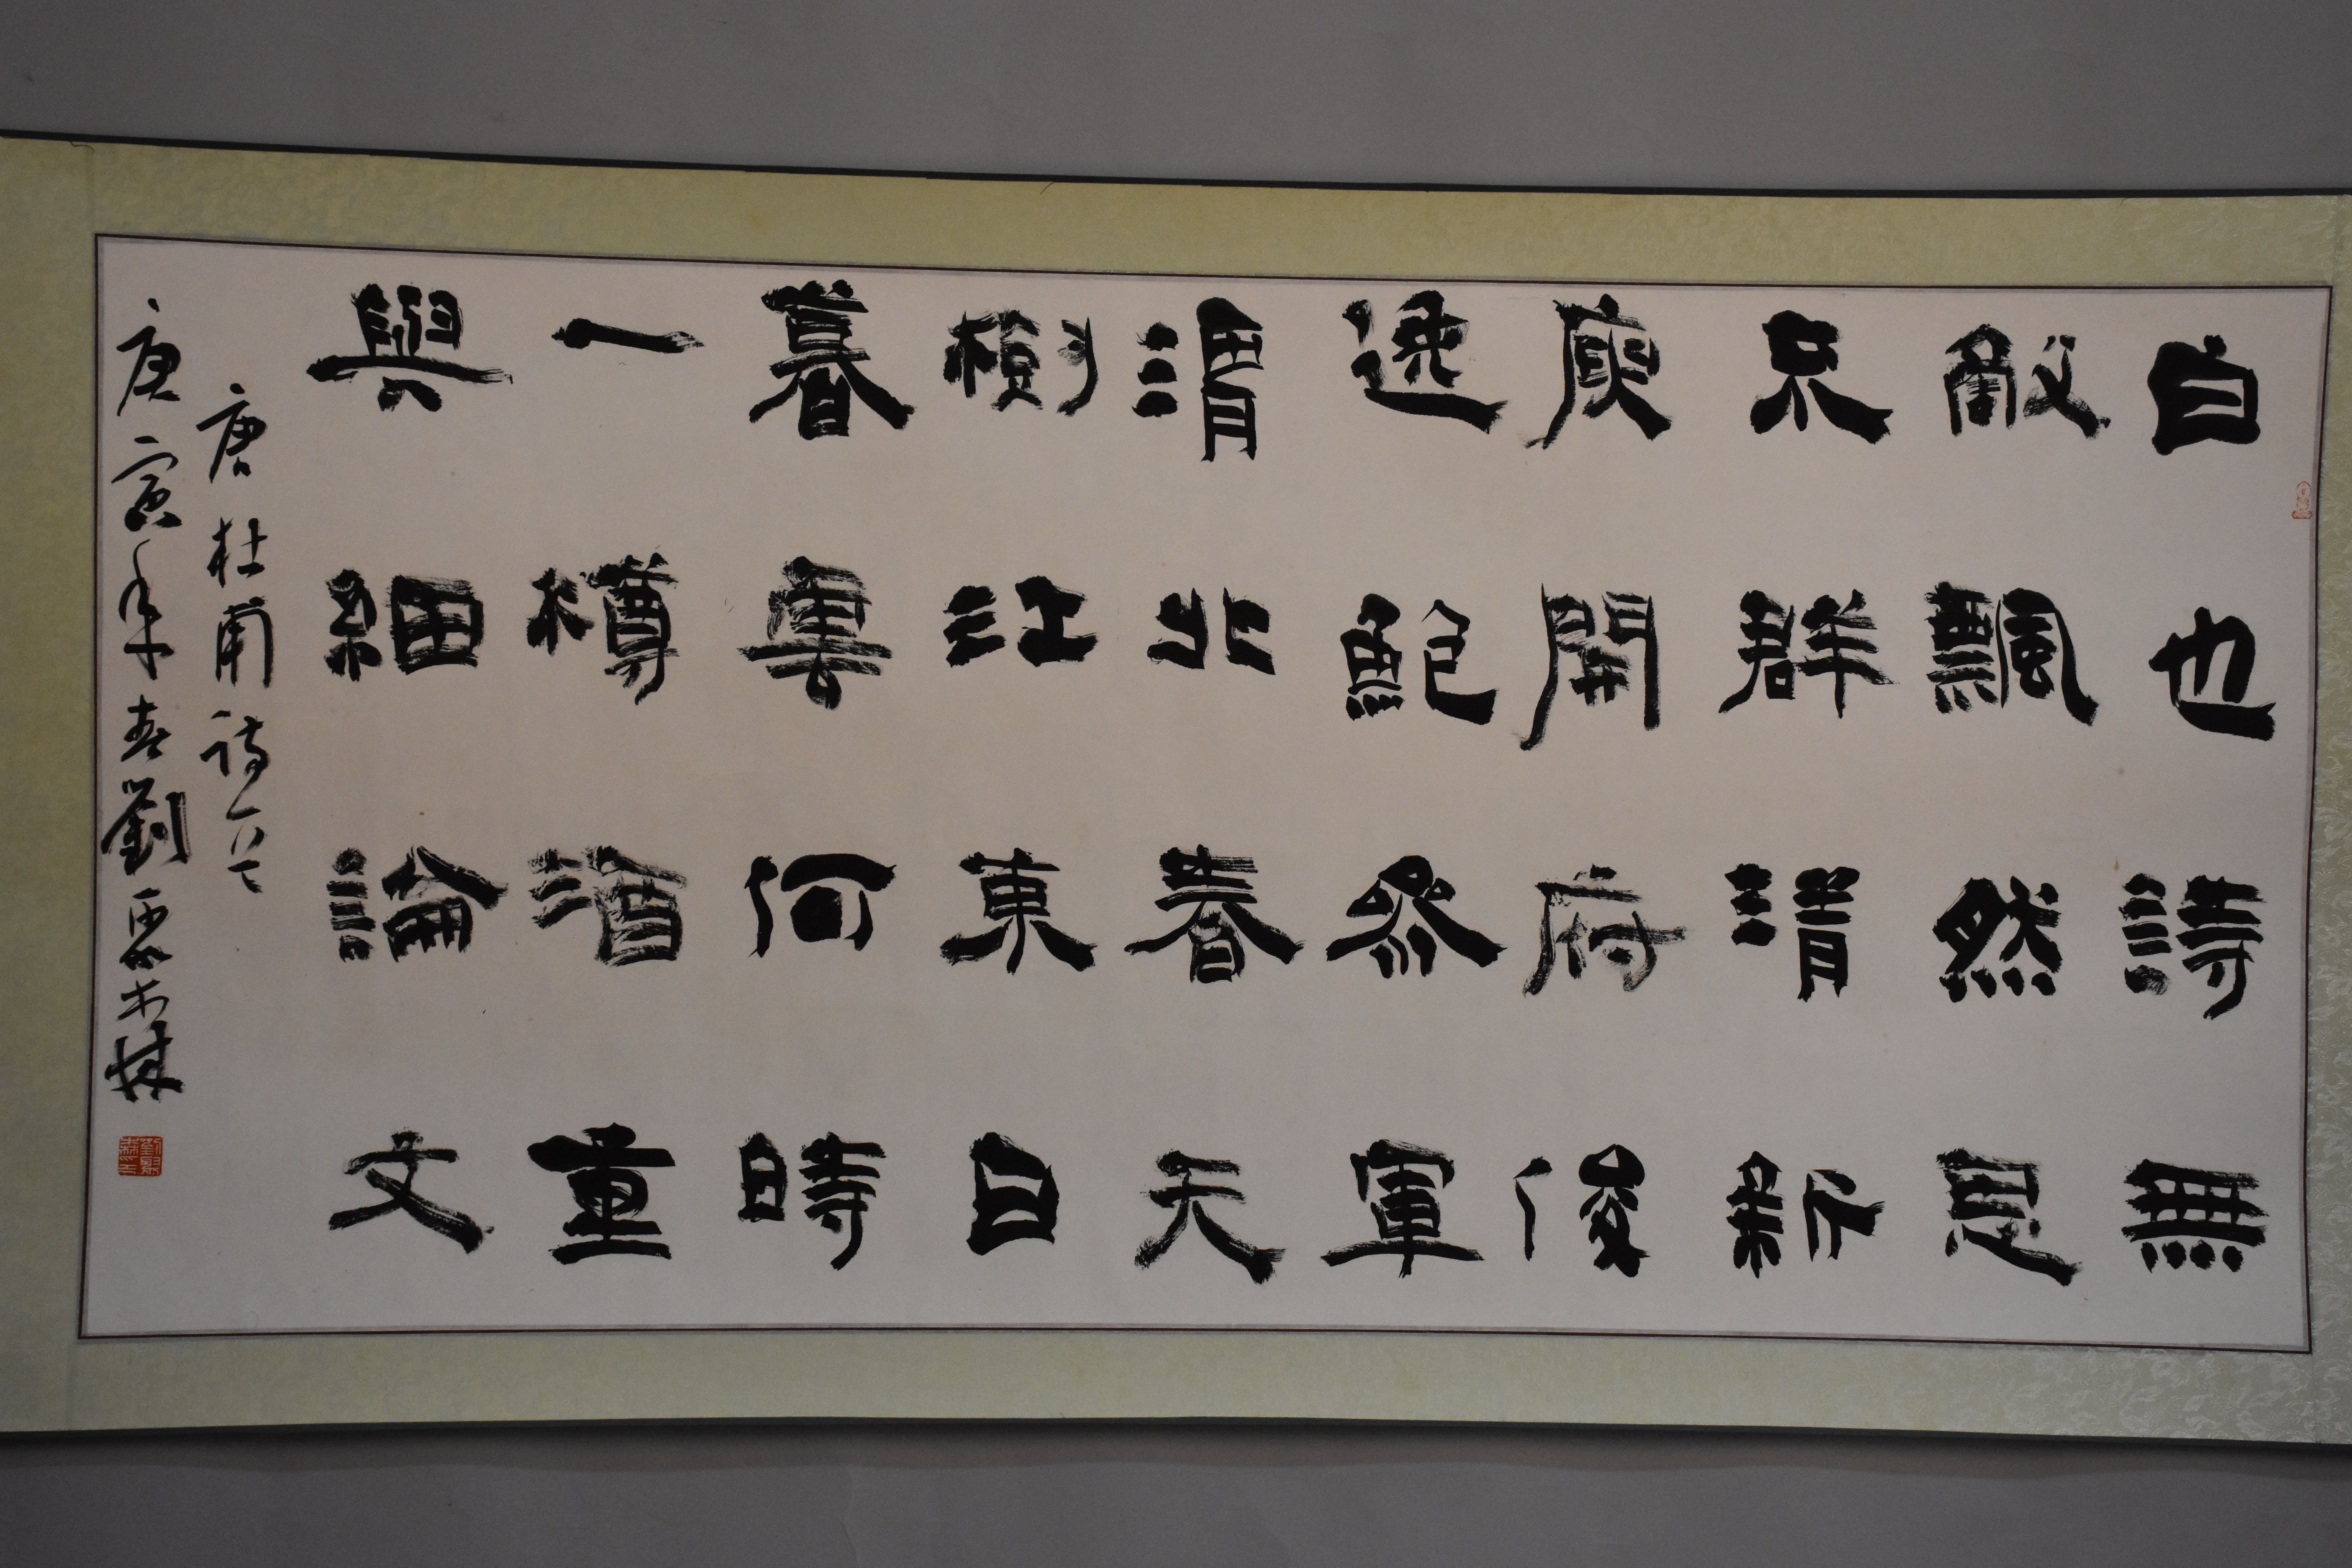 白也詩無
敵飄然思
不群清新
庾開府俊
逸鮑參軍
渭北春天
樹江東日
暮雲何時
一樽酒重
與細論文
唐杜甫詩一首
庚寅年春劉聚森
劉聚森印